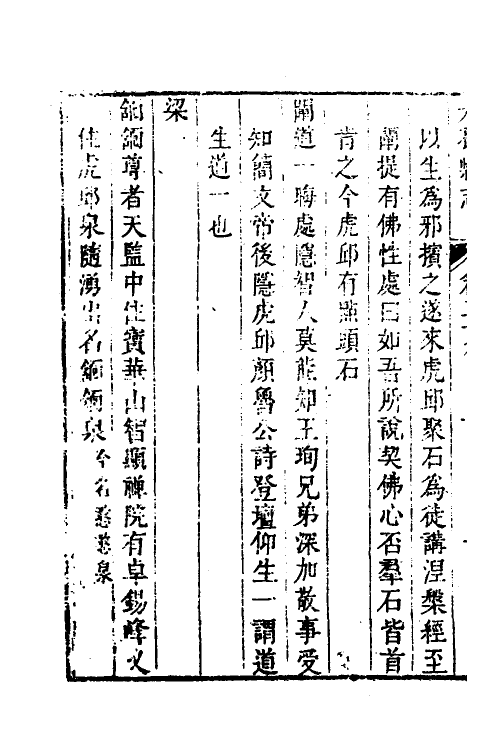 以生為邪擯之遂來虎邱聚石為徒講涅槃經至
闡提有佛性處曰如吾所說契佛心否羣石皆首
肯之今虎邱有點頭石
闍道一晦處隱智人莫能知王珣兄弟深加敬事愛
知簡文帝後隱虎邱顏魯公詩登壇仰生一謂道
生道一也
梁
尊者天監中住寶華山智顯禪院有卓錫峰又
住虎邱泉隨湧出名泉今名憨憨泉